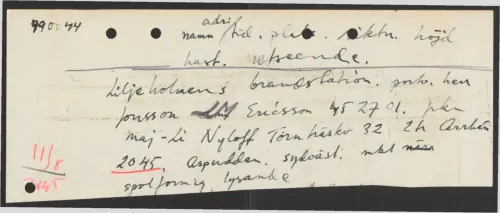 790044
adr.
namn / tid. plats. riktn. höjd
hast. utseende.
Liljeholmens brandstation. portv. herr
Jonsson Ericsson 45 27 01. fkn
Maj-Li Nyloff Törnskov 32, 2 tr Arrhén
2045. Aspudden. sydväst. mkt
spolformig, lysande
11/8
2045